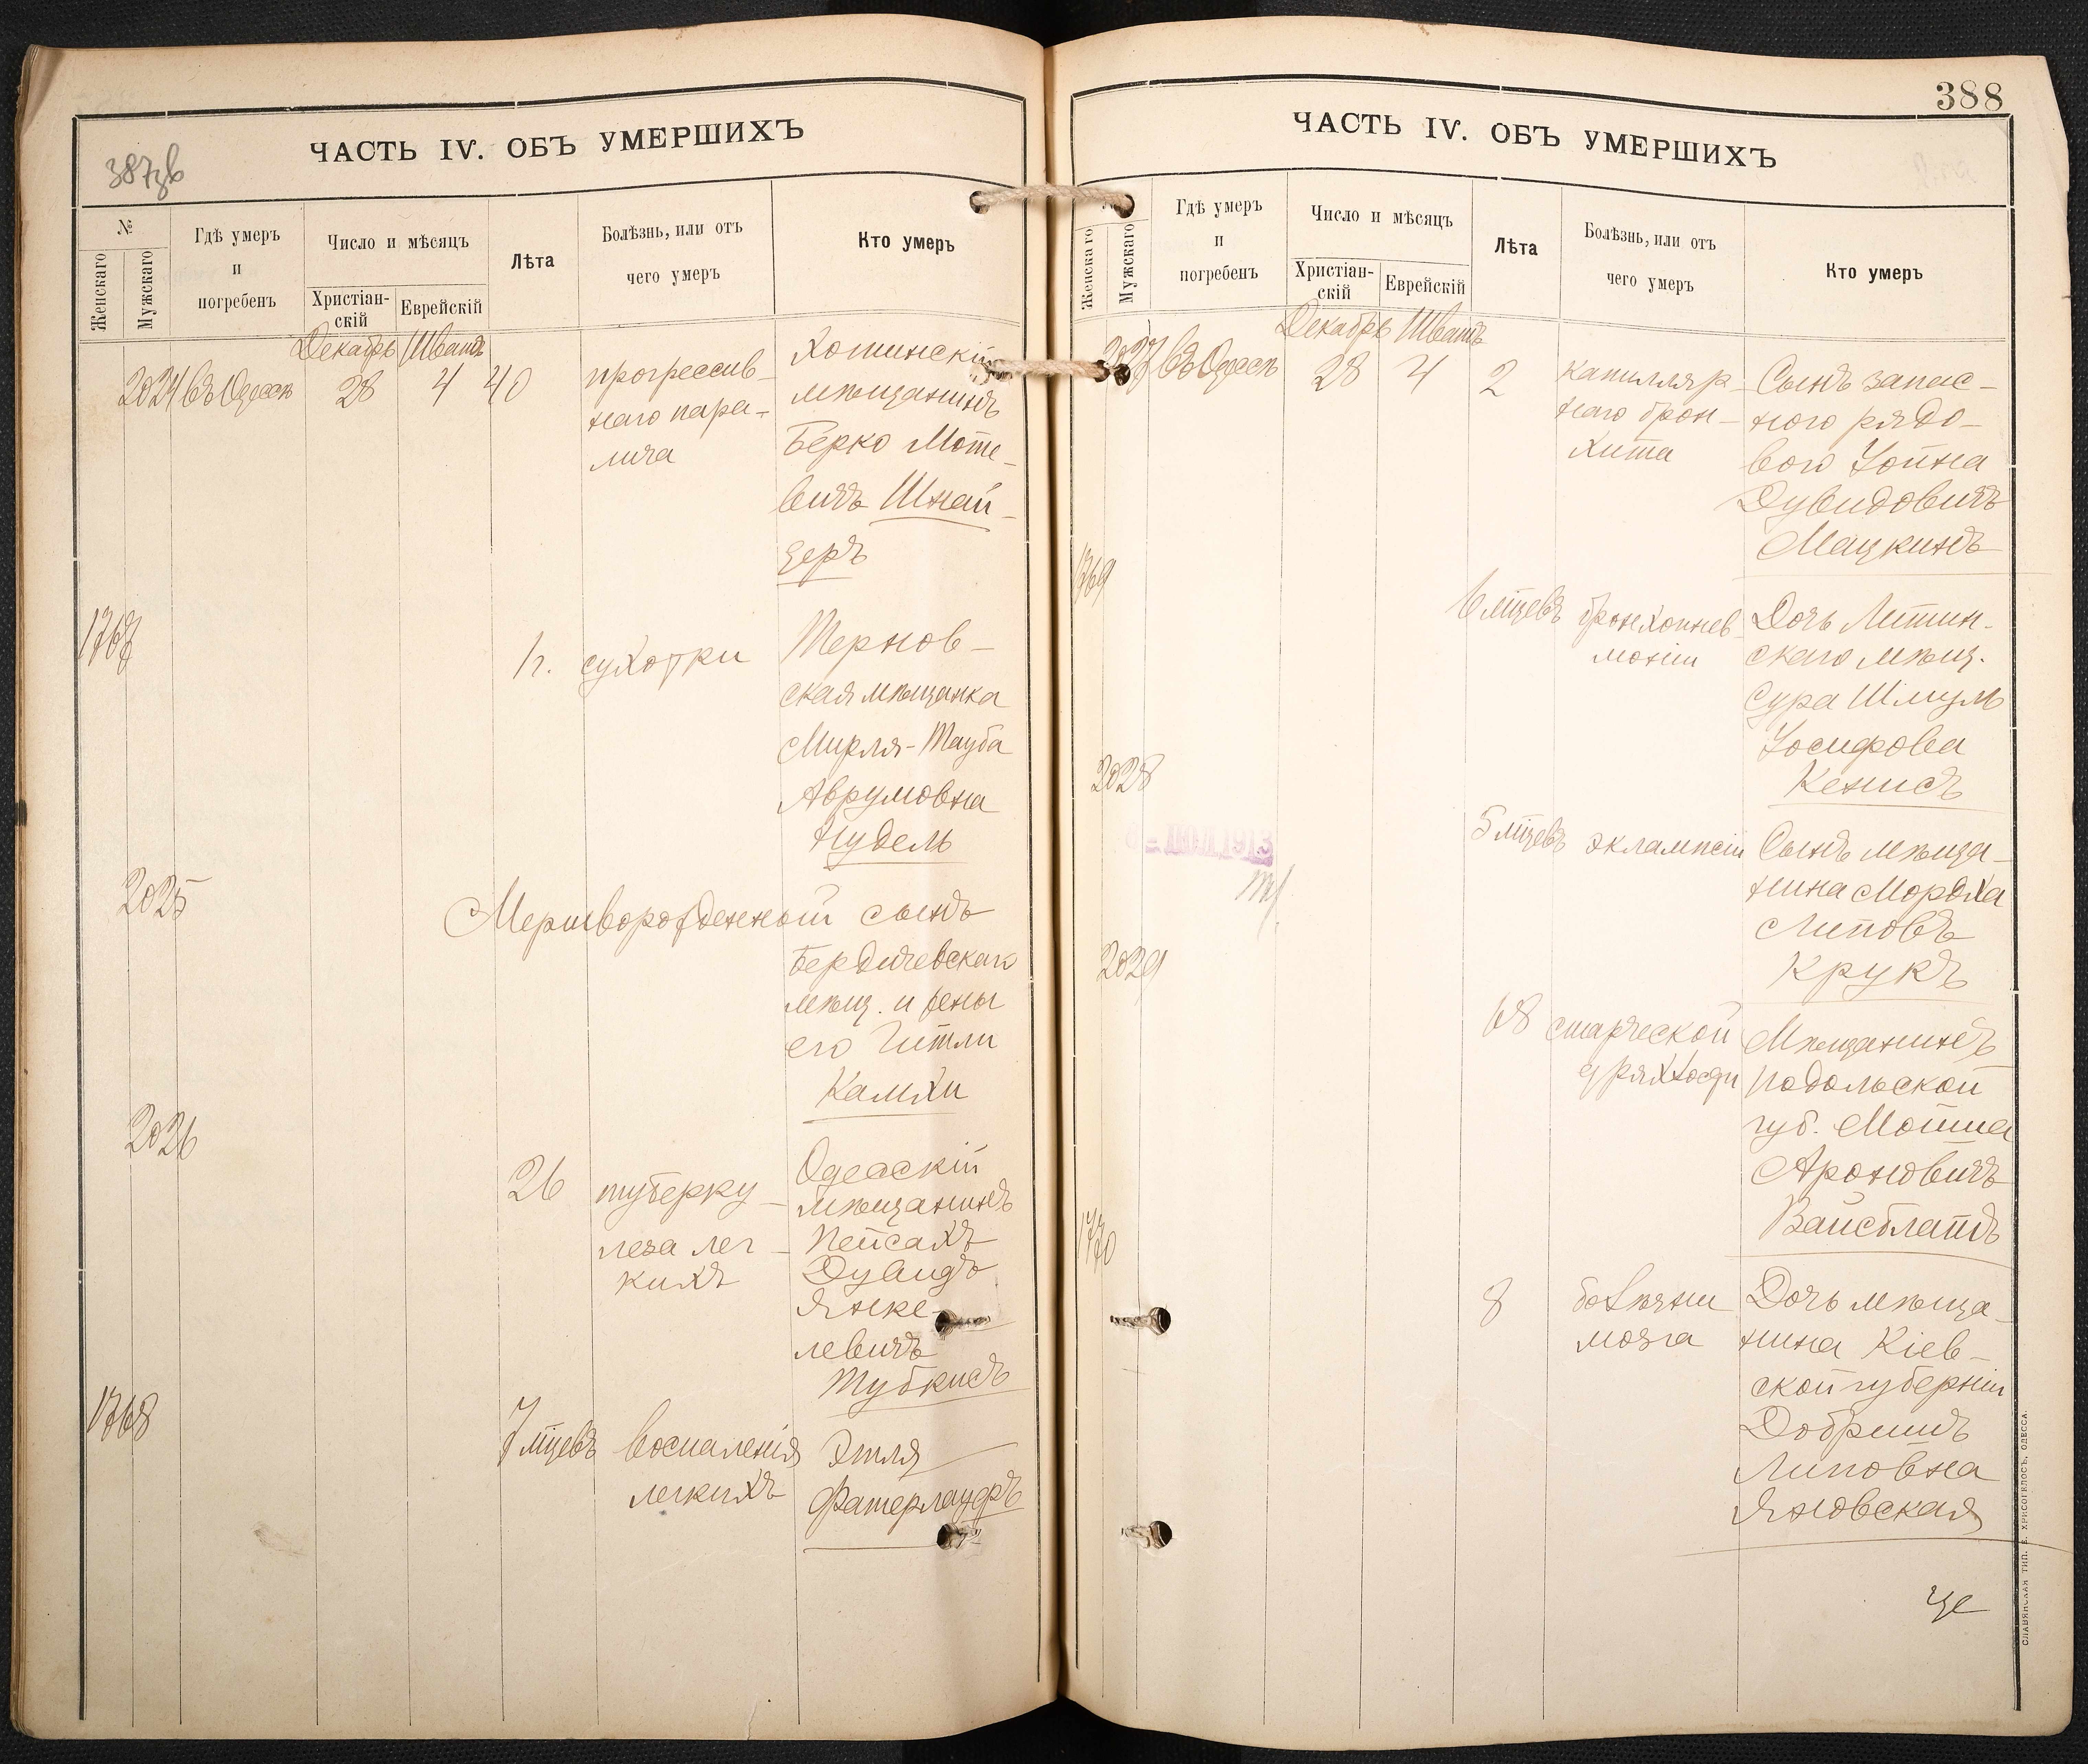 387зв
ЧАСТЬ IV. ОБЪ УМЕРШИХЪ
№
Женскаго
Мужскаго
Гдѣ умеръ
и
погребенъ
Число и мѣсяцъ
Христіан-
скій
Еврейскій
Лѣта
Болѣзнь, или отъ
чего умеръ
Кто умеръ
Декабрь Шватъ
2024 въ Одессѣ 28 4 40
прогрессив-
наго пара-
лича
Хотинскій
мѣщанинъ
Берко Моте-
вичъ Шнай-
деръ
1767
1 г. сухотки
Тернов-
ская мѣщанка
Мирля-Тауба
Аврумовна
Нудель
2025
Мертворожденный сынъ
Бердичевскаго
мѣщ. и жены
его Гитли
Камхи
2026
26
туберку-
леза лег-
кихъ
Одесскій
мѣщанинъ
Пейсахъ-
Дувидъ
Янке-
левичъ
Тубкисъ
1768
7 мцевъ
воспаленія
легкихъ
Этля
Фатерлаудъ
388
ЧАСТЬ IV. ОБЪ УМЕРШИХЪ
Женскаго
Мужскаго
Гдѣ умеръ
и
погребенъ
Число и мѣсяцъ
Христіан-
скій
Еврейскій
Лѣта
Болѣзнь, или отъ
чего умеръ
Кто умеръ
Декабрь Шватъ
2027 въ Одессѣ 28 4 2
капилляр-
наго брон-
хита
Сынъ запас-
ного рядо-
вого Іойна
Дувидовичъ
Мацкинъ
1769
6 мцевъ
бронхопнев-
моніи
Дочь Летин-
скаго мѣщ.
Сура Шмуль
Іосифова
Кенисъ
2028
5 мцевъ экламписіи
Сынъ мѣща-
нина Мордха
Липовъ
Крукъ
2029
68
старческой
дряхлости
Мѣщанинъ
Подольской
губ. Мошиа
Ароновичъ
Вайсблатъ
1770
8
болѣзни
мозга
Дочь мѣща-
нина Кіев-
ской губерніи
Добришъ
Липовна
Яновская
СЛАВЯНСКАЯ ТИП. Е. ХРИСОГЕЛОСЪ, ОДЕССА.